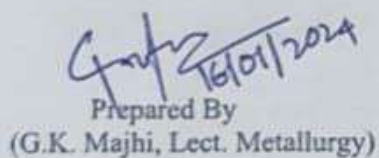 16/01/2024
Prepared By
(G.K. Majhi, Lect. Metallurgy)